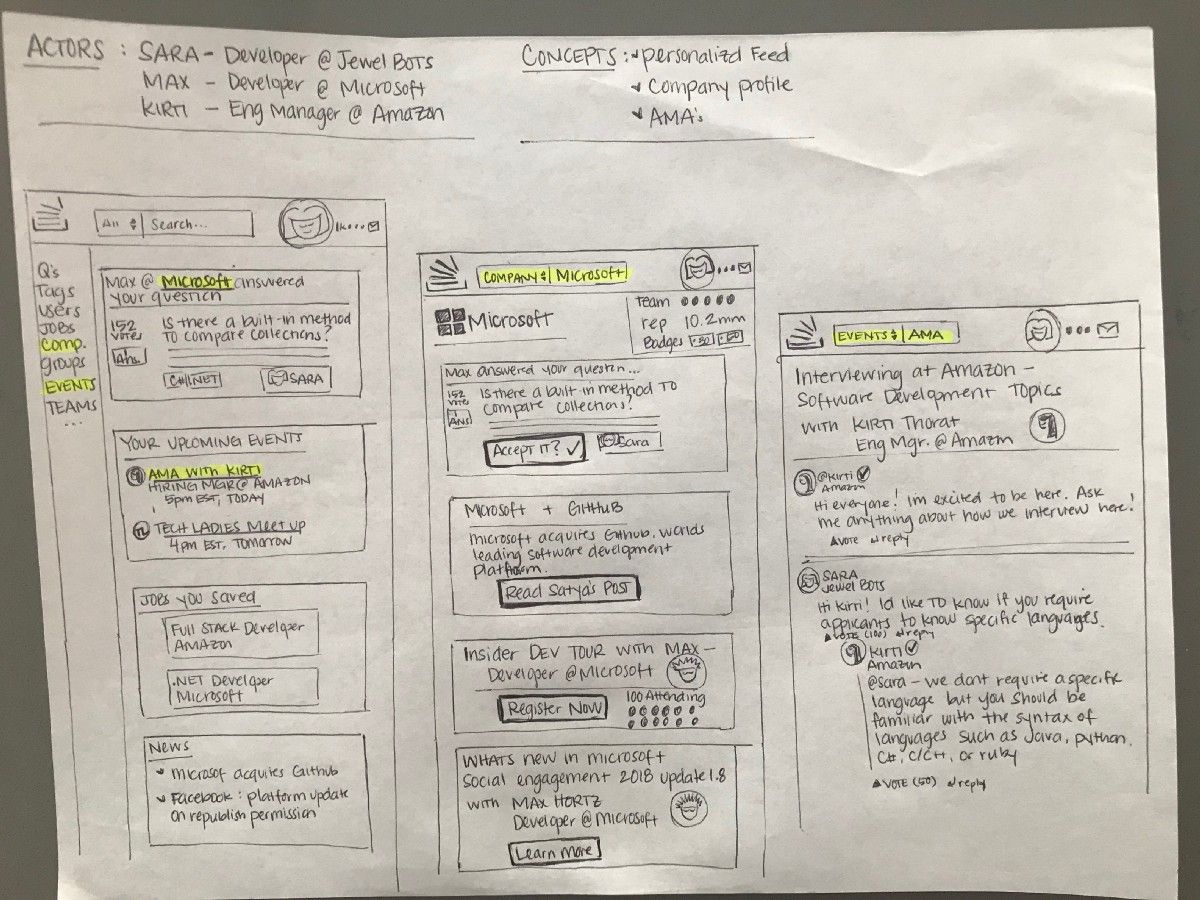 ACTORS : SARA – Developer @ Jewel BOTS
MAX – Developer @ Microsoft
KIRTI – Eng Manager @ Amazon
CONCEPTS : personalizd Feed
Company profile
AMA's
All Search...
1k
Q's
Tags
Users
JOBS
Comp.
groups
EVENTS
TEAMS
...
Max @ Microsoft answered
your question
152
VOTES
Is there a built-in method
TO compare collections?
Ans.
C# .NET
SARA
YOUR UPCOMING EVENTS
AMA WITH KIRTI
HIRING MGR @ AMAZON
5pm EST, TODAY
TL TECH LADIES MEET UP
4pm EST, TOMORROW
JOBS YOU SAVED
FULL STACK Developer
AMAZON
.NET Developer
Microsoft
NEWS
microsof acquires Github
Facebook : platform update
on republish permission
COMPANY MICROSOFT
Microsoft
Team
rep 10.2mm
Badges
Max answered your questin...
152
VOTES
1
ANS
Is there a built-in method TO
compare collections?
ACCEPT IT? ✓
Sara
Microsoft + GitHUB
microsoft acquires Github. worlds
leading software development
platform.
Read Satya's Post
Insider DEV TOUR WITH MAX –
Developer @Microsoft
Register Now
100 Attending
WHATS new in microsoft
Social engagement 2018 update 1.8
WITH MAX HORTZ
Developer @Microsoft
Learn More
EVENTS AMA
Interviewing at Amazon –
Software Development TOPICS
WITH KIRTI Thorat
Eng Mgr. @ Amazon
@Kirti
Amazon
Hi everyone! Im excited to be here. Ask
me anything about how we interview here!
VOTE reply
SARA
Jewel BOTS
Hi Kirti! Id like TO know if you require
applicants to know specific languages.
VOTE (100) reply
Kirti
Amazon
@sara – we dont require a specific
language but you should be
familiar with the syntax of
languages such as Java, python,
C#, C/C++, or ruby
VOTE (50) reply